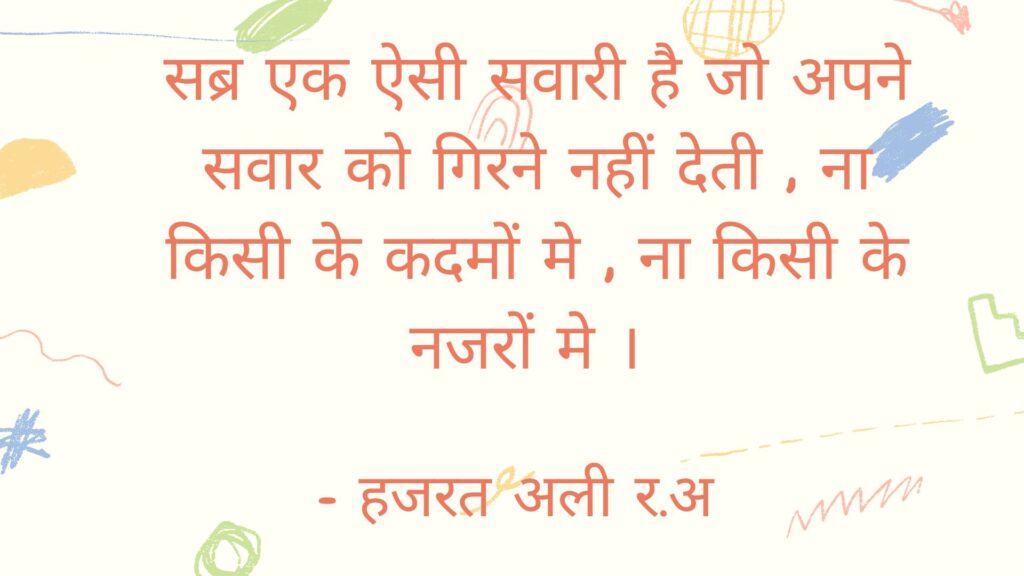 सब्र एक ऐसी सवारी है जो अपने
सवार को गिरने नहीं देती , ना
किसी के कदमों मे , ना किसी के
नजरों मे ।
- हजरत अली र.अ